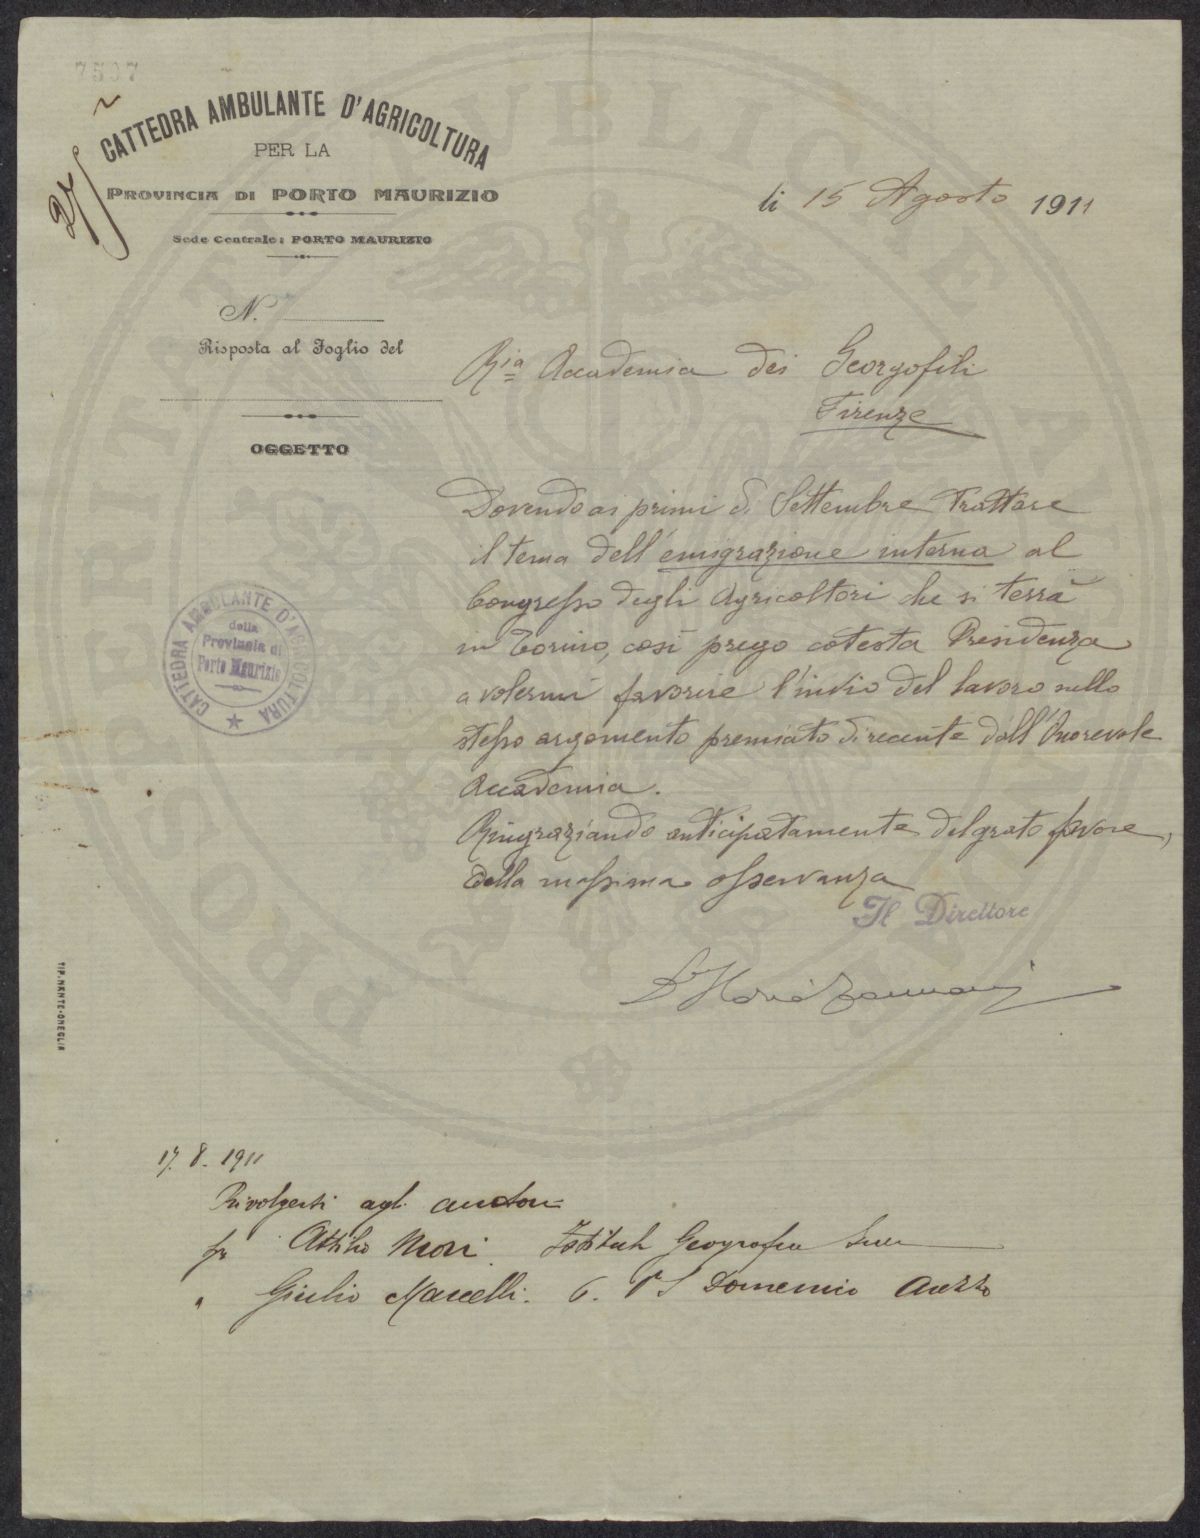 7507
CATTEDRA AMBULANTE D'AGRICOLTURA
PER LA
PROVINCIA DI PORTO MAURIZIO
Sede Centrale: PORTO MAURIZIO
li 15 Agosto 1911
N.
Risposta al Foglio del
OGGETTO
Ria Accademia dei Georgofili
Firenze
Dovendo ai primi di Settembre trattare
il tema dell'emigrazione interna al
Congresso degli Agricoltori che si terrà
in Torino, così prego cotesta Presidenza
a volermi favorire l'invio del lavoro sullo
stesso argomento premiato di recente dall'Onorevole
Accademia.
Ringraziando anticipatamente del grato favore,
colla massima osservanza
Il Direttore
CATTEDRA AMBULANTE D'AGRICOLTURA
della
Provincia di
Porto Maurizio
TIP. NANTE-ONEGLIA
17. 8. 1911
Rivolgersi agli autori
Attilio Mori Istituto Geografico
" Giulio Marcelli. 6. P S Domenico Arezzo